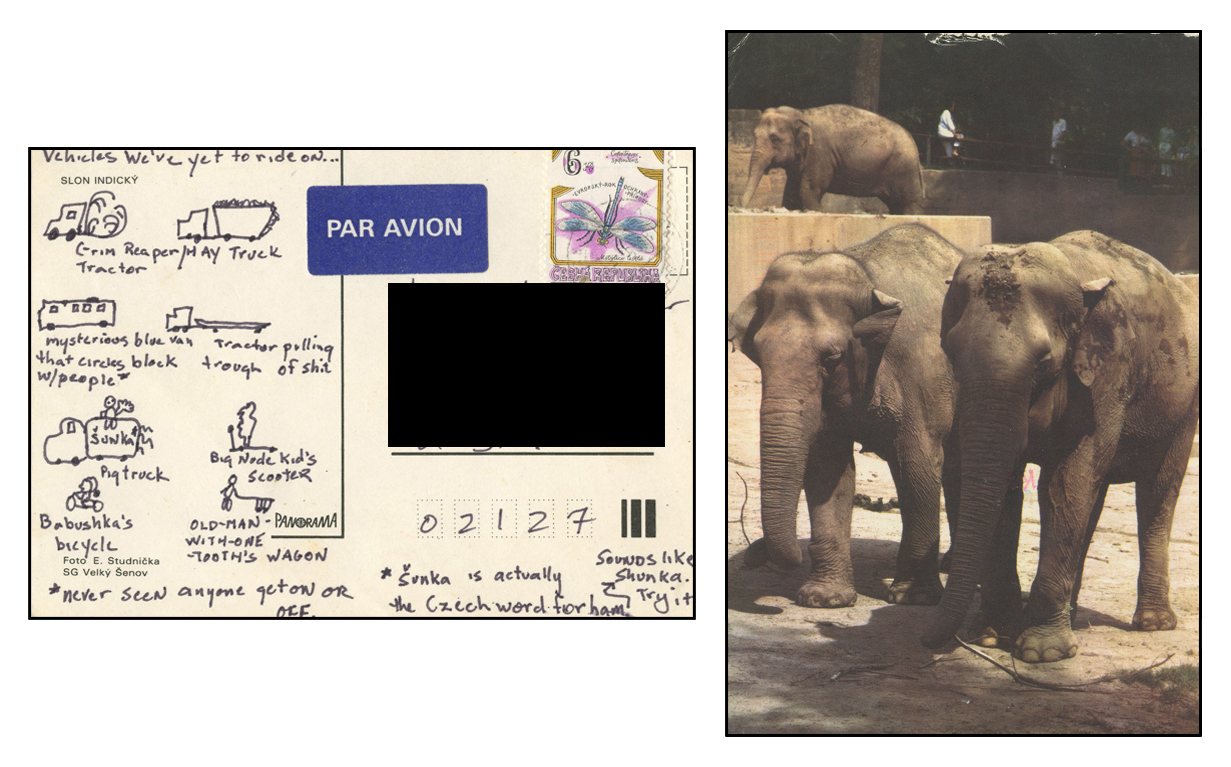 Vehicles We've yet to ride on...
SLON INDICKÝ
Grim Reaper/HAY Truck
Tractor
mysterious blue van
that circles block
w/people*
Tractor pulling
trough of shit
ŠUNKA
Pigtruck
Big Node Kid's
SCOOTER
Babushka's
bicycle
OLD-MAN-
WITH-ONE
-TOOTH'S WAGON
PANORAMA
Foto E. Studnička
SG Velký Šenov
*never seen anyone get on OR
OFF.
PAR AVION
6
EVROPSKÝ ROK OCHRANY PŘÍRODY
ČESKÁ REPUBLIKA
02127
* Šunka is actually
the Czech word for ham.
Sounds like
Shunka.
Try it